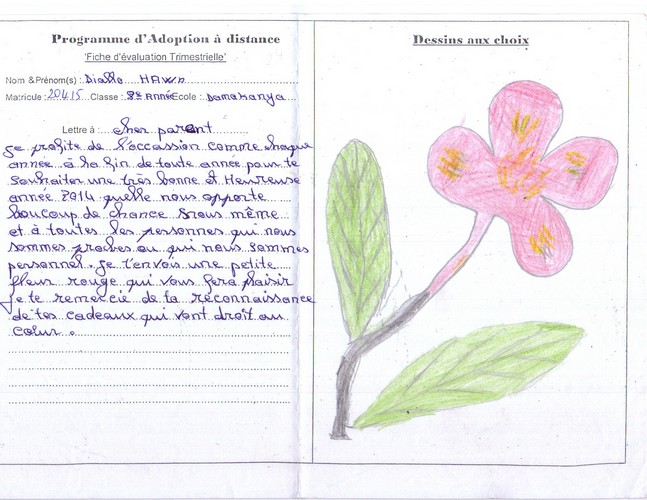 Programme d'Adoption à distance
'Fiche d'évaluation Trimestrielle'
Nom & Prénom(s) : Diallo HAWA
Matricule : 20415 Classe : 8e Année Ecole : Damakanya
Lettre à : cher parent
je profite de l'occassion comme chaque
année à la fin de toute année pour te
souhaiter une très bonne et Heureuse
année 2014 quelle nous opporte
boucoup de chance à nous même
et à toutes les personnes qui nous
sommes proches ou qui nous sommes
personnel. je t'envois une petite
fleur rouge qui vous fera plaisir
je te remercie de ta reconnaissance
de tes cadeaux qui vont droit au
coeur.
Dessins aux choix